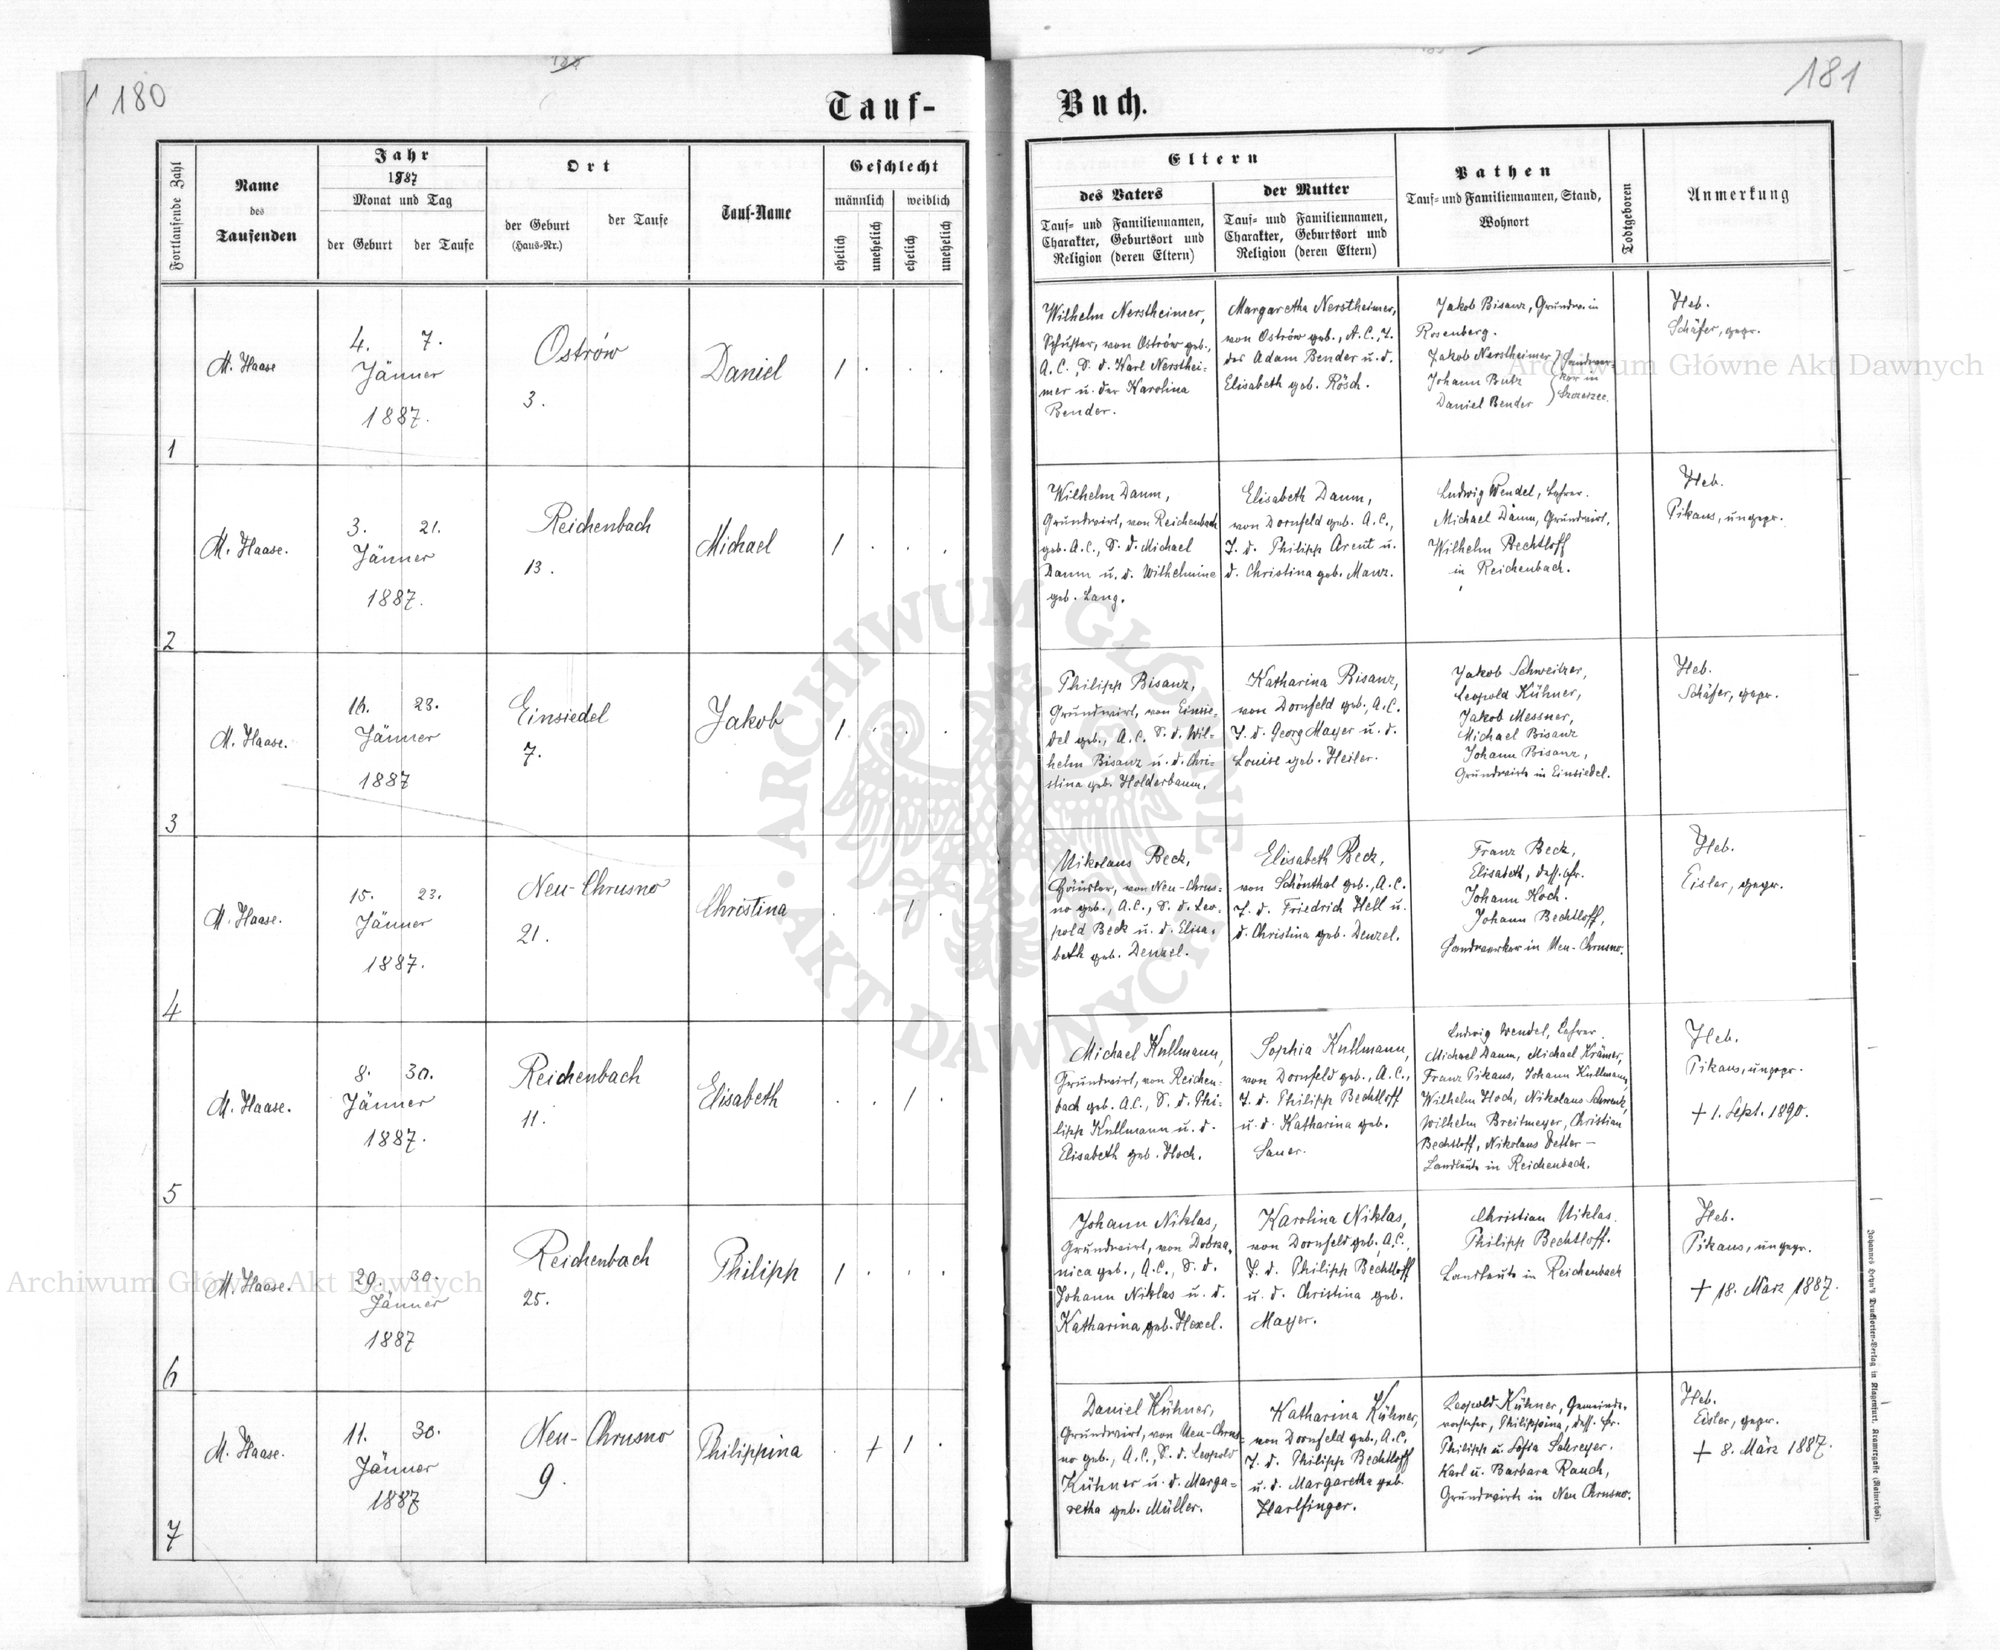 180
181
Tauf-
Buch.
Fortlaufende Zahl
Name
des
Taufenden
Jahr
1887
Monat und Tag
der Geburt
der Taufe
Ort
der Geburt
(Haus-Nr.)
der Taufe
Tauf-Name
Geschlecht
männlich
weiblich
ehelich
unehelich
ehelich
unehelich
Eltern
des Vaters
Tauf- und Familiennamen,
Charakter, Geburtsort und
Religion (deren Eltern)
der Mutter
Tauf- und Familiennamen,
Charakter, Geburtsort und
Religion (deren Eltern)
Pathen
Tauf- und Familiennamen, Stand,
Wohnort
Todtgeboren
Anmerkung
1
M. Haase
4. 7.
Jänner
1887.
Ostrów
3.
Daniel
1 . . .
Wilhelm Nerstheimer,
Schuster, von Ostrów geb.,
A.C., S. d. Karl Nersthei-
mer u. der Karolina
Bender.
Margaretha Nerstheimer,
von Ostrów geb., A.C., T.
des Adam Bender u. d.
Elisabeth geb. Rösch.
Jakob Bisanz, Grundw. in
Rosenberg.
Jakob Nerstheimer
Johann Butz
Daniel Bender
Heb.
Schäfer, gepr.
2
M. Haase.
3. 21.
Jänner
1887.
Reichenbach
13.
Michael
1 . . .
Wilhelm Daum,
Grundwirt, von Reichenbach
geb. A.C., S. d. Michael
Daum u. d. Wilhelmine
geb. Lang.
Elisabeth Daum,
von Dornfeld geb. A.C.,
T. d. Philipp Arent u.
d. Christina geb. Manz.
Ludwig Wendel, Lehrer.
Michael Daum, Grundwirt,
Wilhelm Bechtloff
in Reichenbach.
Heb.
Pikaus, ungepr.
3
M. Haase.
16. 23.
Jänner
1887
Einsiedel
7.
Jakob
1 . . .
Philipp Bisanz,
Grundwirt, von Einsie-
del geb., A.C. S. d. Wil-
helm Bisanz u. d. Chri-
stina geb. Holderbaum.
Katharina Bisanz,
von Dornfeld geb., A.C.
T. d. Georg Mayer u. d.
Louise geb. Heiler.
Jakob Schweitzer,
Leopold Kühner,
Jakob Messner,
Michael Bisanz
Johann Bisanz,
Grundwirte in Einsiedel.
Heb.
Schäfer, gepr.
4
M. Haase.
15. 23.
Jänner
1887.
Neu-Chrusno
21.
Christina
. . 1 .
Nikolaus Beck,
von Neu-Chrus-
no geb., A.C., S. d. Leo-
pold Beck u. d. Elisa-
beth geb. Denzel.
Elisabeth Beck,
von Schönthal geb., A.C.
T. d. Friedrich Hell u.
d. Christina geb. Denzel.
Franz Beck,
Elisabeth, dess. Fr.
Johann Koch.
Johann Bechtloff,
Handwerker in Neu-Chrusno.
Heb.
Eisler, gepr.
5
M. Haase.
8. 30.
Jänner
1887.
Reichenbach
11.
Elisabeth
. . 1 .
Michael Kullmann,
Grundwirt, von Reichen-
bach geb. A.C., S. d. Phi-
lipp Kullmann u. d.
Elisabeth geb. Hoch.
Sophia Kullmann,
von Dornfeld geb., A.C.,
T. d. Philipp Bechtloff
u. d. Katharina geb.
Sauer.
Ludwig Wendel, Lehrer.
Michael Daum, Michael Krämer,
Franz Pikaus, Johann Kullmann,
Wilhelm Hoch, Nikolaus Schrenk,
Wilhelm Breitmeyer, Christian
Bechtloff, Nikolaus Vetter –
Landleute in Reichenbach.
Heb.
Pikaus, ungepr.
† 1. Sept. 1890.
6
M. Haase.
29. 30.
Jänner
1887
Reichenbach
25.
Philipp
1 . . .
Johann Niklas,
Grundwirt, von Dobrza-
nica geb., A.C., S. d.
Johann Niklas u. d.
Katharina geb. Hexel.
Karolina Niklas,
von Dornfeld geb., A.C.,
T. d. Philipp Bechtloff
u. d. Christina geb.
Mayer.
Christian Niklas.
Philipp Bechtloff.
Landleute in Reichenbach
Heb.
Pikaus, ungepr.
† 18. März 1887.
7
M. Haase.
11. 30.
Jänner
1887
Neu-Chrusno
9.
Philippina
. † 1 .
Daniel Kühner,
Grundwirt, von Neu-Chrus-
no geb., A.C., S. d. Leopold
Kühner u. d. Marga-
retha geb. Müller.
Katharina Kühner,
von Dornfeld geb., A.C.
T. d. Philipp Bechtloff
u. d. Margaretha geb.
Harlfinger.
Leopold Kühner, Gemeinde-
vorsteher, Philippina, dess. Fr.
Philipp u. Sofia Schreyer.
Karl u. Barbara Rauch,
Grundwirte in Neu Chrusno.
Heb.
Eisler, gepr.
† 8. März 1887.
Johannes Heyn's Drucksorten-Verlag in Klagenfurt, Kramergasse
Archiwum Główne Akt Dawnych
Archiwum Główne Akt Dawnych
ARCHIWUM GŁÓWNE
AKT DAWNYCH